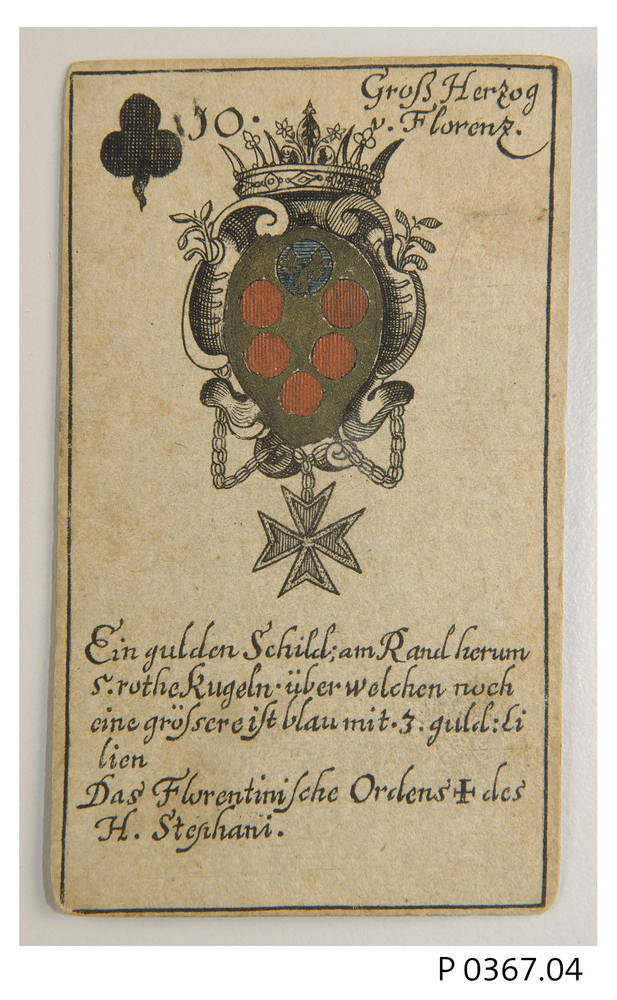 10.
Groß Herzog
v. Florenz.
Ein gulden Schild; am Rand herum
5. rothe Kugeln · über welchen noch
eine grössere ist blau mit · 3. guld: Li
lien
Das Florentinische Ordens ✠ des
H. Stephani.
P 0367.04